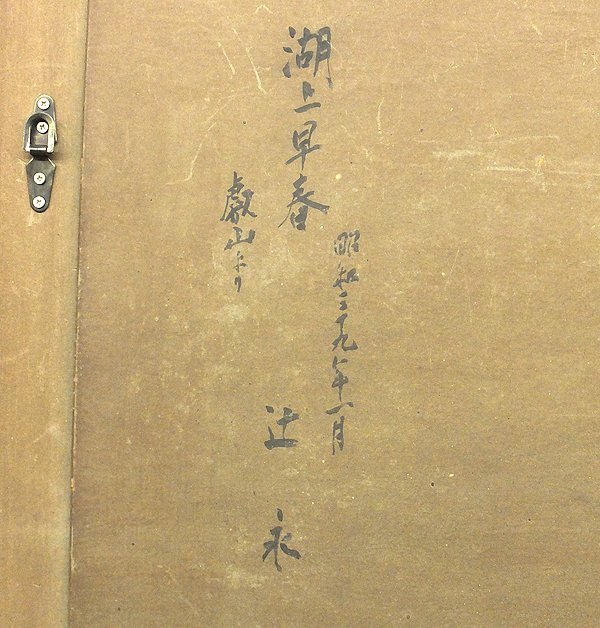 昭和三十九年一月
湖上早春
叡山より
辻 永